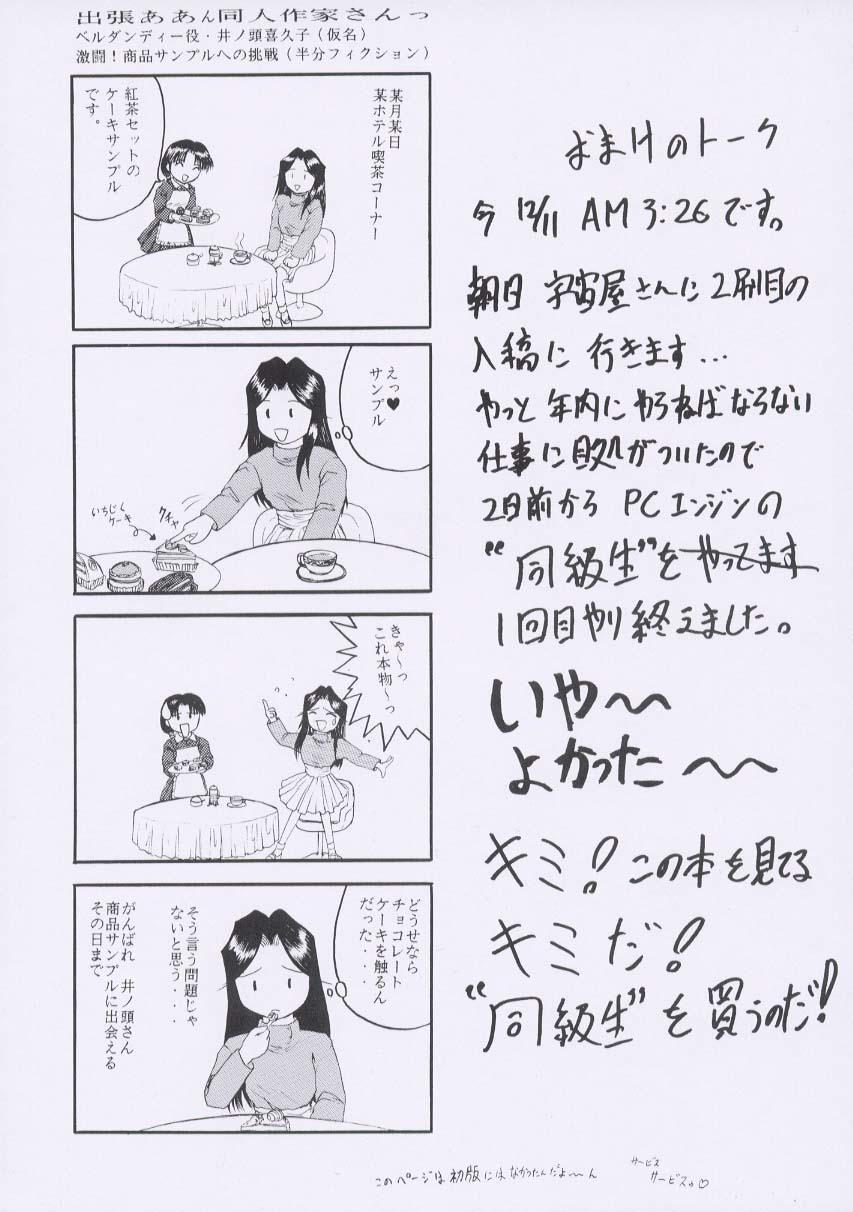 出張ああん同人作家さんっ
ベルダンディー役・井ノ頭喜久子（仮名）
激闘！商品サンプルへの挑戦（半分フィクション）
某月某日
某ホテル喫茶コーナー
紅茶セットの
ケーキサンプル
です。
えっ♥
サンプル
クチャ
いちじく
ケーキ
きゃ〜っ
これ本物〜っ
どうせなら
チョコレート
ケーキを触るん
だった・・
そう言う問題じゃ
ないと思う・・・
がんばれ 井ノ頭さん
商品サンプルに出会える
その日まで
おまけのトーク
今 12/11 AM 3:26です。
朝日 宇宙屋さんに2刷目の
入稿に 行きます...
やっと 年内に やらねばならない
仕事に目処がついたので
2日前から PCエンジンの
"同級生"をやってます
1回目やり終えました。
いや〜〜
よかった〜〜
キミ！この本を見てる
キミだ！
"同級生"を買うのだ！
このページは初版にはなかったんだよ〜ん
サービス
サービスぅ♡